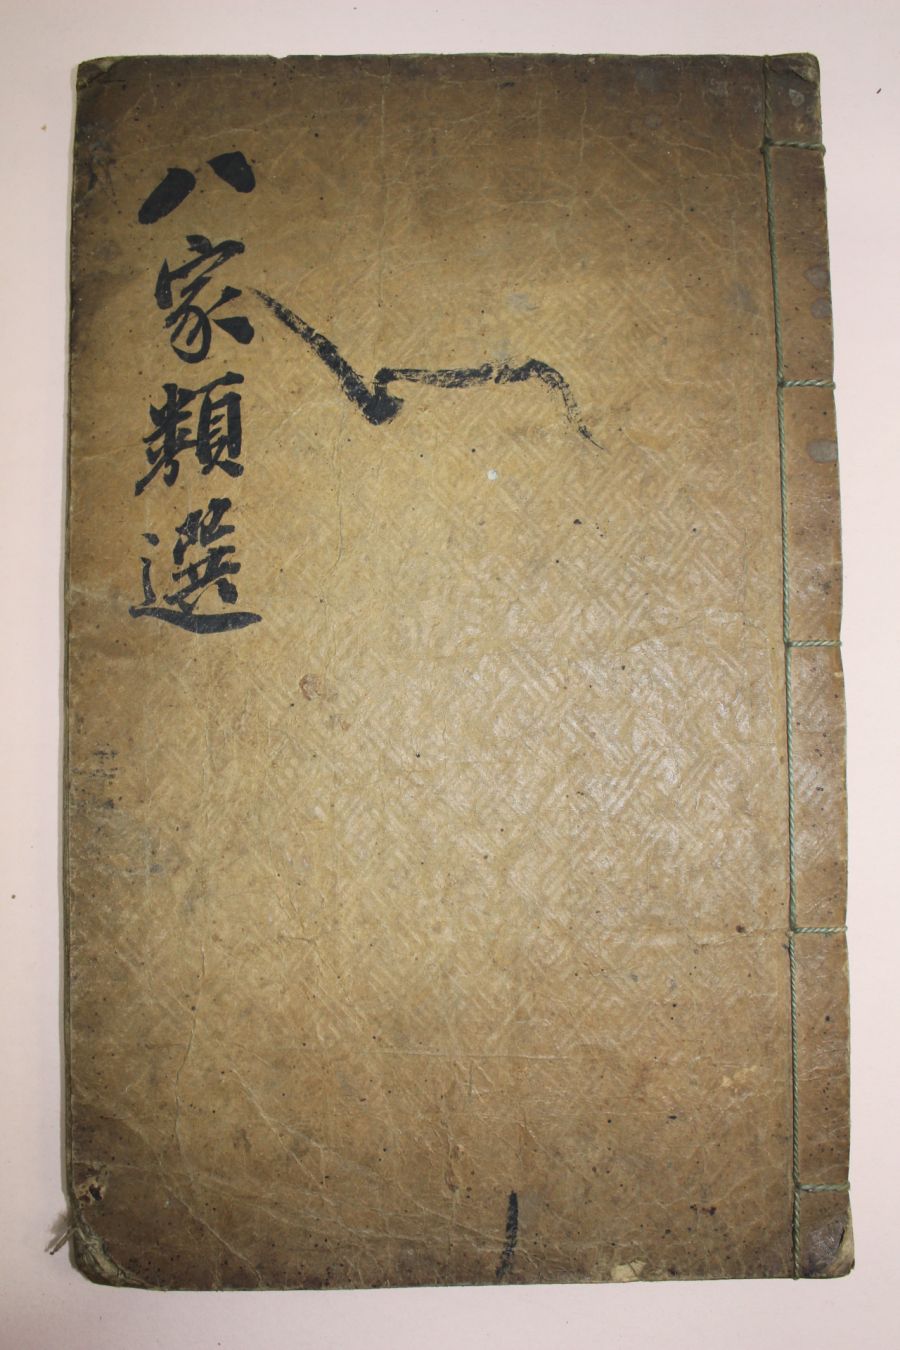 八家類選